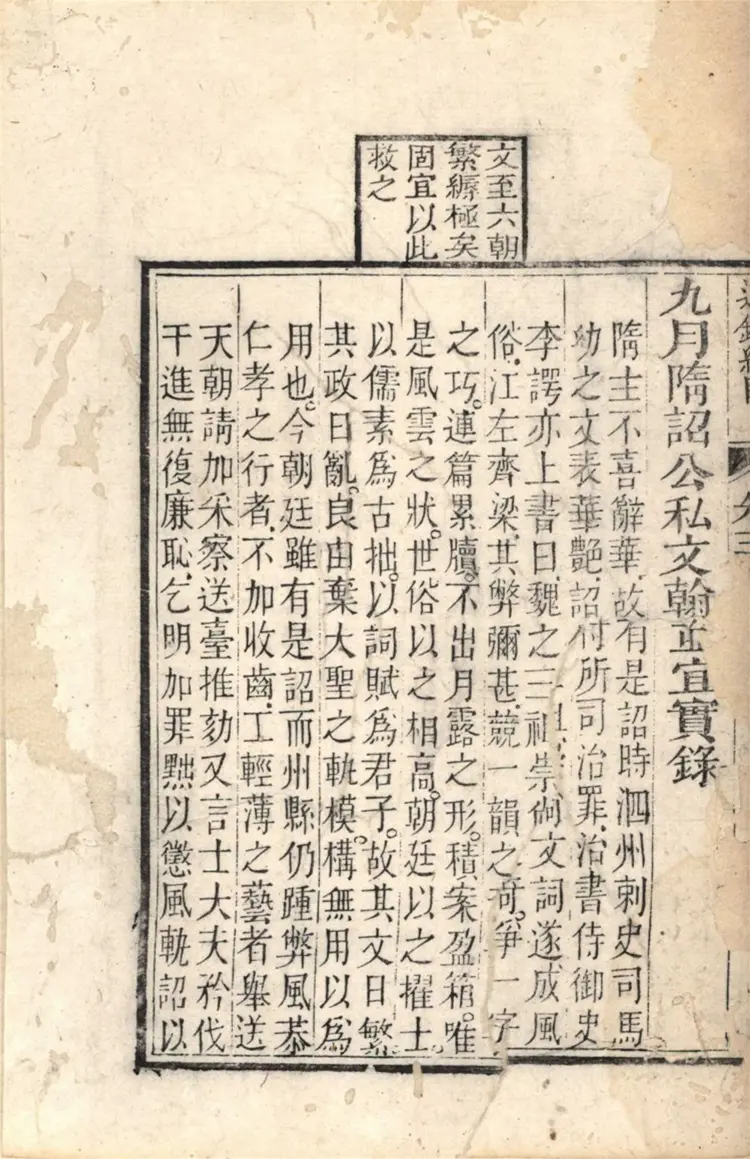 文至六朝
繁縟極矣
固宜以此
救之
九月隋詔公私文翰並宜實錄
隋主不喜辭華故有是詔時泗州刺史司馬
幼之文表華艷詔付所司治罪治書侍御史
李諤亦上書曰魏之三祖崇尙文詞遂成風
俗江左齊梁其弊彌甚競一韻之奇爭一字
之巧連篇累牘不出月露之形積案盈箱唯
是風雲之狀世俗以之相高朝廷以之擢士
以儒素爲古拙以詞賦爲君子故其文日繁
其政日亂良由棄大聖之軌模構無用以爲
用也今朝廷雖有是詔而州縣仍踵弊風恭
仁孝之行者不加收齒工輕薄之藝者舉送
天朝請加采察送臺推劾又言士大夫矜伐
干進無復廉恥乞明加罪黜以懲風軌詔以